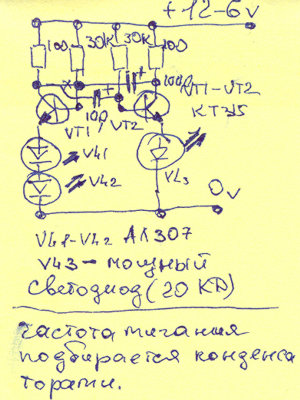 +12-6v
100 30K 30K 100
100
100
VT1-VT2
КТ315
VT1/VT2
V41
V42
VL3
0v
V41-V42 АЛ307
V43 - мощный
светодиод (20 КД)
частота мигания
подбирается конденса
торами.